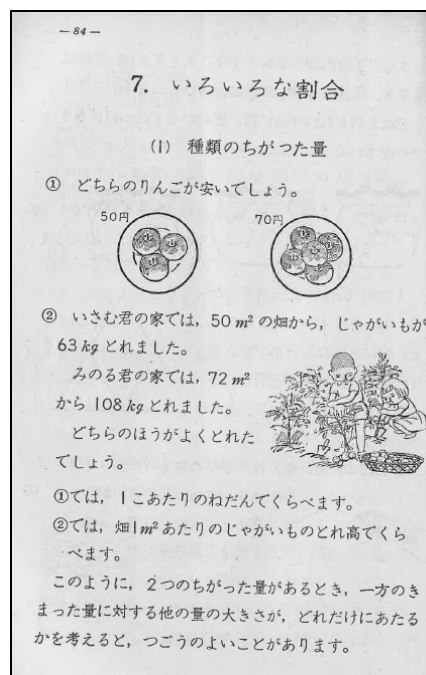 — 84 —
7. いろいろな割合
(1) 種類のちがった量
① どちらのりんごが安いでしょう。
50円 70円
② いさむ君の家では，50m²の畑から，じゃがいもが
63kgとれました。
みのる君の家では，72m²
から108kgとれました。
どちらのほうがよくとれた
でしょう。
①では，1こあたりのねだんでくらべます。
②では，畑1m²あたりのじゃがいものとれ高でくら
べます。
このように，2つのちがった量があるとき，一方のき
まった量に対する他の量の大きさが，どれだけにあたる
かを考えると，つごうのよいことがあります。